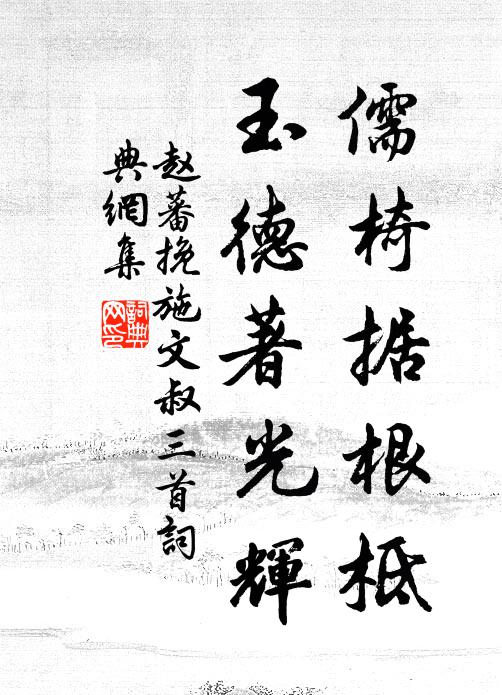 儒椅据根柢
玉德著光輝
赵蕃挽施文叔三首詞
典網集
詞典
网印